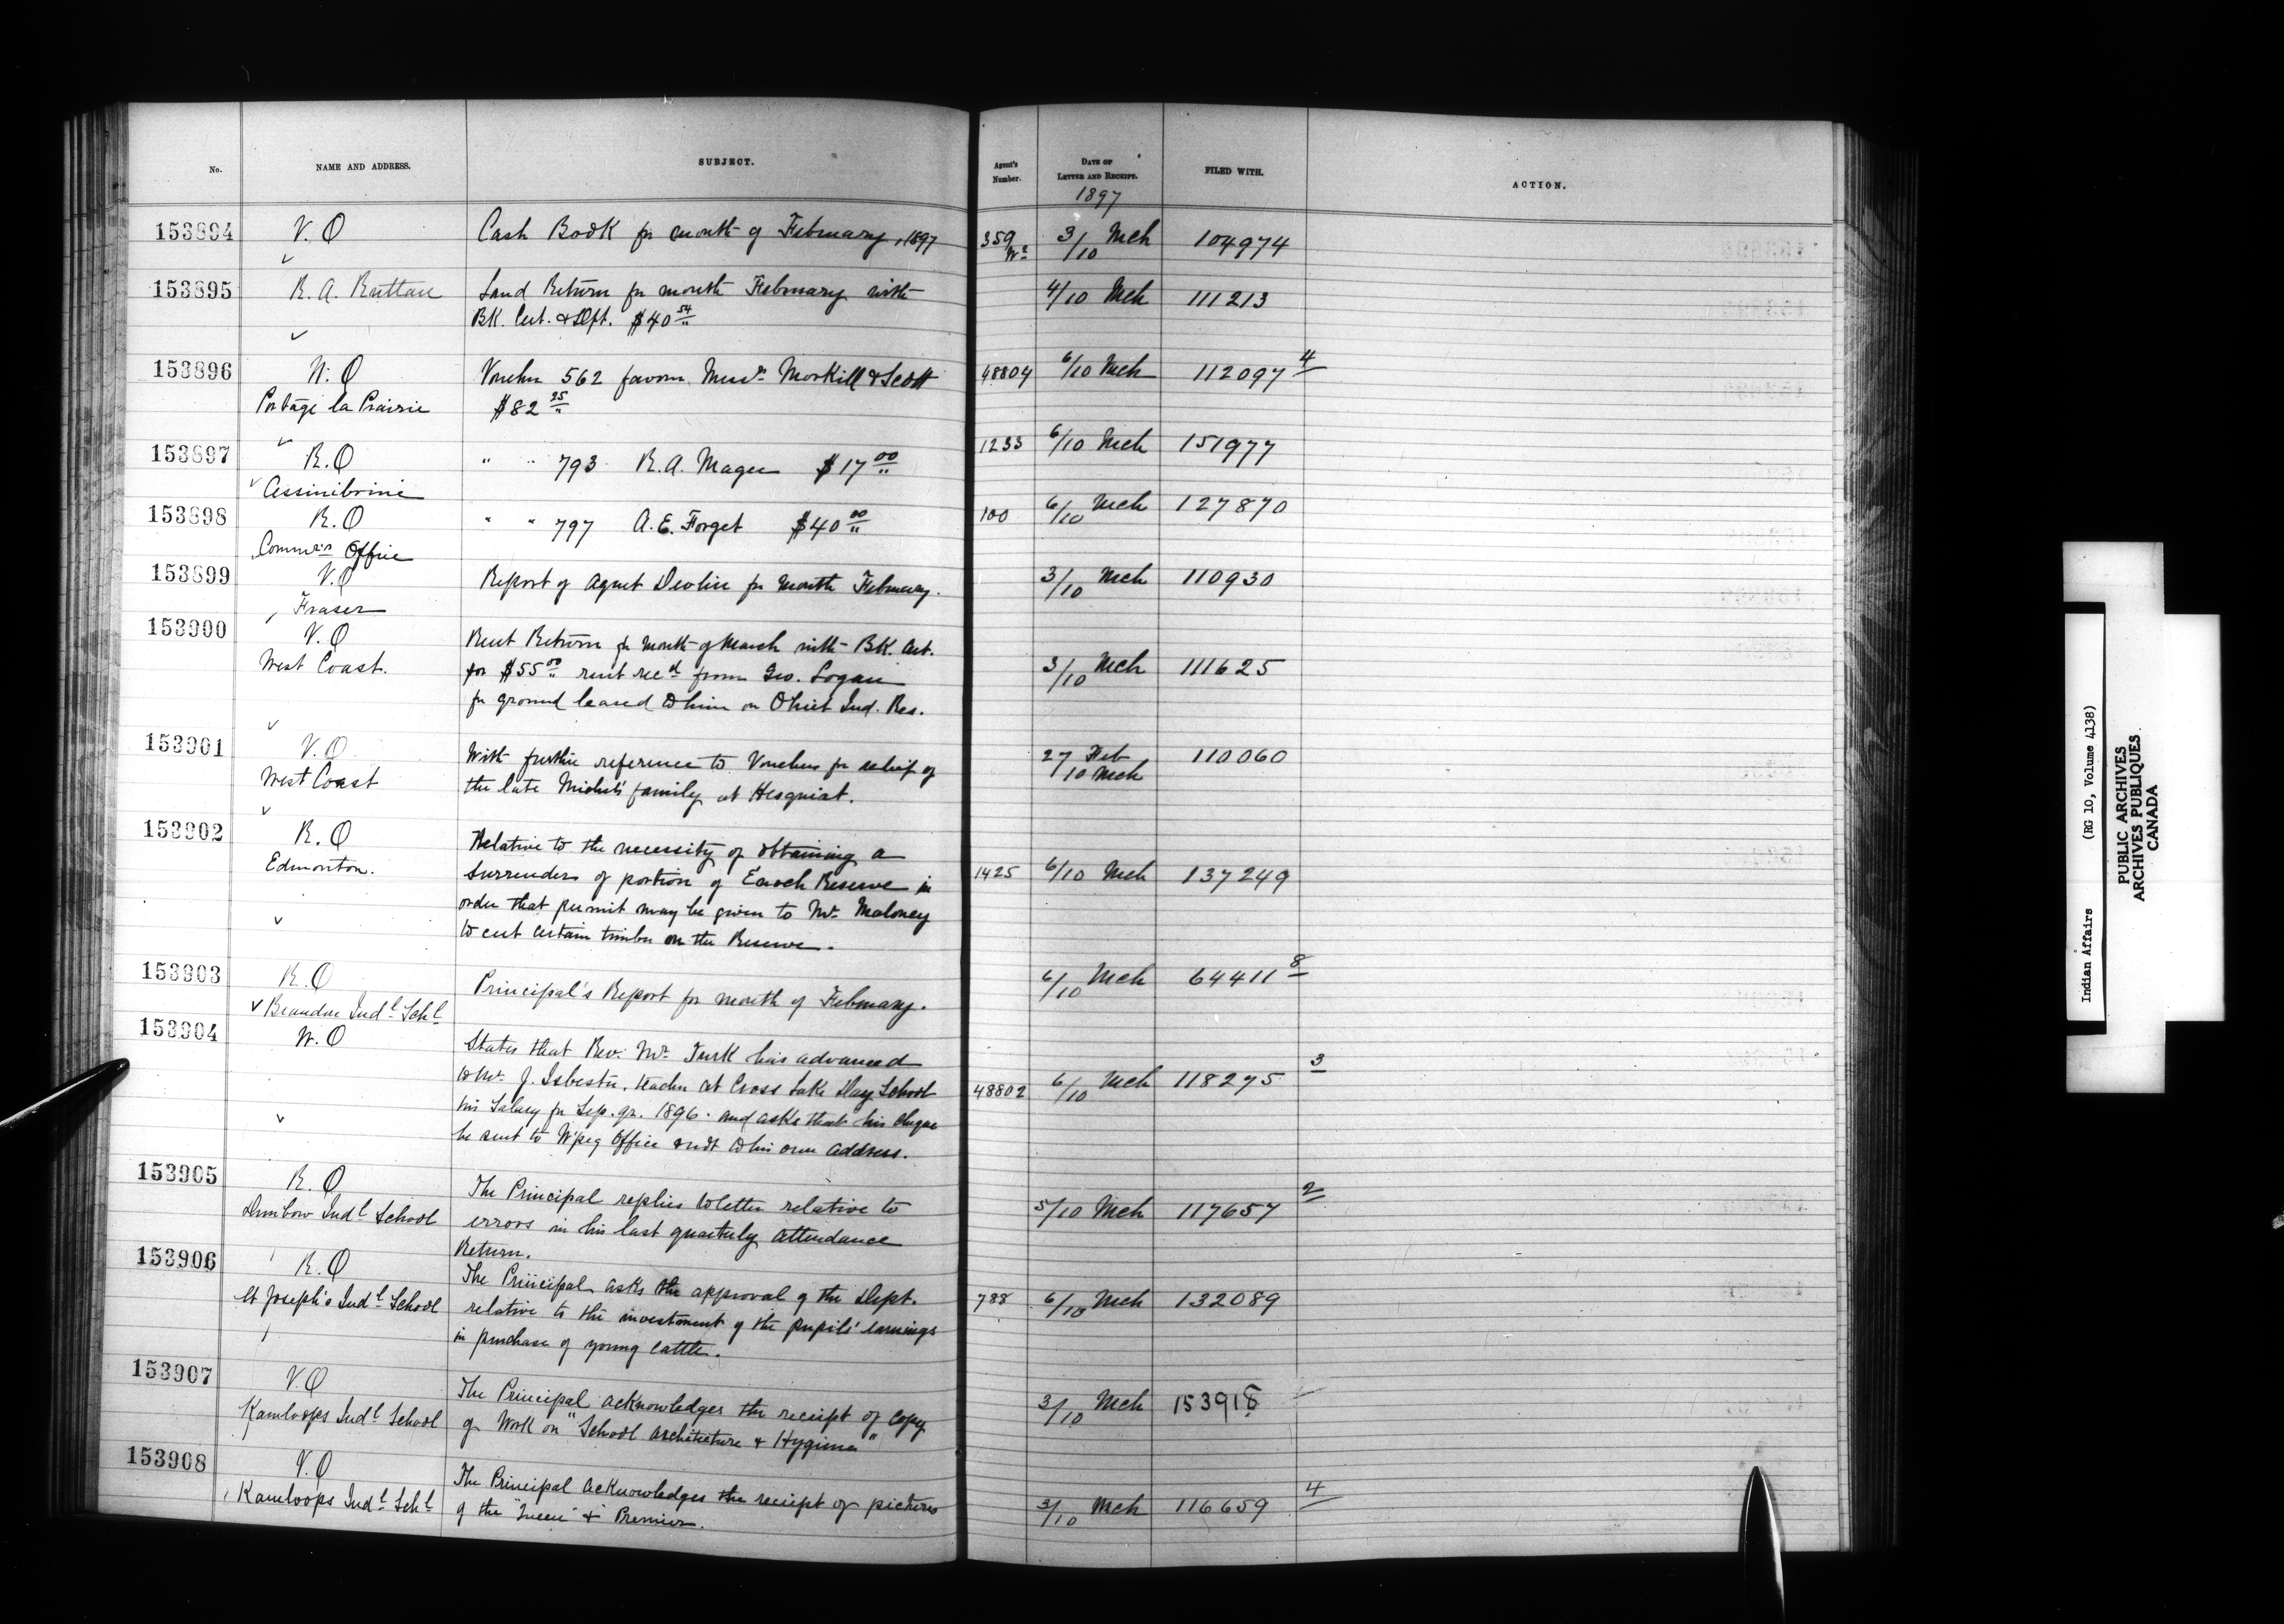 No.
NAME AND ADDRESS.
SUBJECT.
Agent's Number.
DATE OF LETTER AND RECEIPT.
FILED WITH.
ACTION.
1897
153894
V.O
Cash Book for month of February, 1897
359 Wn
3/10 Mch
104974
153895
R. A. Ruttan
Land Return for month February with
BK. Cert. & Dft. $40 54/"
4/10 Mch
111213
153896
W. O
Portage la Prairie
Voucher 562 favour Messrs. Morkill & Scott
$82 25/"
48804
6/10 Mch
112097 4
153897
R.O
Assiniboine
" " 793 R.A. Magee $17 00/"
1233
6/10 Mch
151977
153898
R.O
Commr's Office
" " 797 A.E. Forget $40 00/"
100
6/10 Mch
127870
153899
V.O
Fraser
Report of Agent Devlin for month February.
3/10 Mch
110930
153900
V.O
West Coast.
Rent Return for month of March with BK. Cert.
for $55 00/" rent recd from Geo. Logan
for ground leased to him on Ohiet Ind. Res.
3/10 Mch
111625
153901
V.O
West Coast
With further reference to Vouchers for relief of
the late Michel's family at Hesquiat.
27 Feb
/10 Mch
110060
153902
R.O
Edmonton.
Relative to the necessity of obtaining a
Surrender of portion of Enoch Reserve in
order that permit may be given to Mr. Maloney
to cut certain timber on the Reserve.
1425
6/10 Mch
137249
153903
R.O
Brandon Indl Schl
Principal's Report for month of February.
6/10 Mch
64411 8
153904
W.O
States that Rev. Mr. Turk has advanced
to Mr. J. Isbester, teacher at Cross Lake Day School
his Salary for Sep. qr. 1896. and asks that his cheque
be sent to W'peg Office & not to his own address.
48802
6/10 Mch
118275 3
153905
R.O
Dunbow Indl School
The Principal replies to letter relative to
errors in his last quarterly attendance
Return.
5/10 Mch
117657 2
153906
R.O
St Joseph's Indl School
The Principal asks the approval of the Dept.
relative to the investment of the pupils' earnings
in purchase of young cattle.
788
6/10 Mch
132089
153907
V.O
Kamloops Indl School
The Principal acknowledges the receipt of copy
of Work on "School Architecture & Hygiene"
3/10 Mch
153153908
V.O
Kamloops Indl Schl
The Principal acknowledges the receipt of pictures
of the "Queen" & Premier.
3/10 Mch
116659 4
Indian Affairs (RG 10, Volume 4138)
PUBLIC ARCHIVES
ARCHIVES PUBLIQUES
CANADA